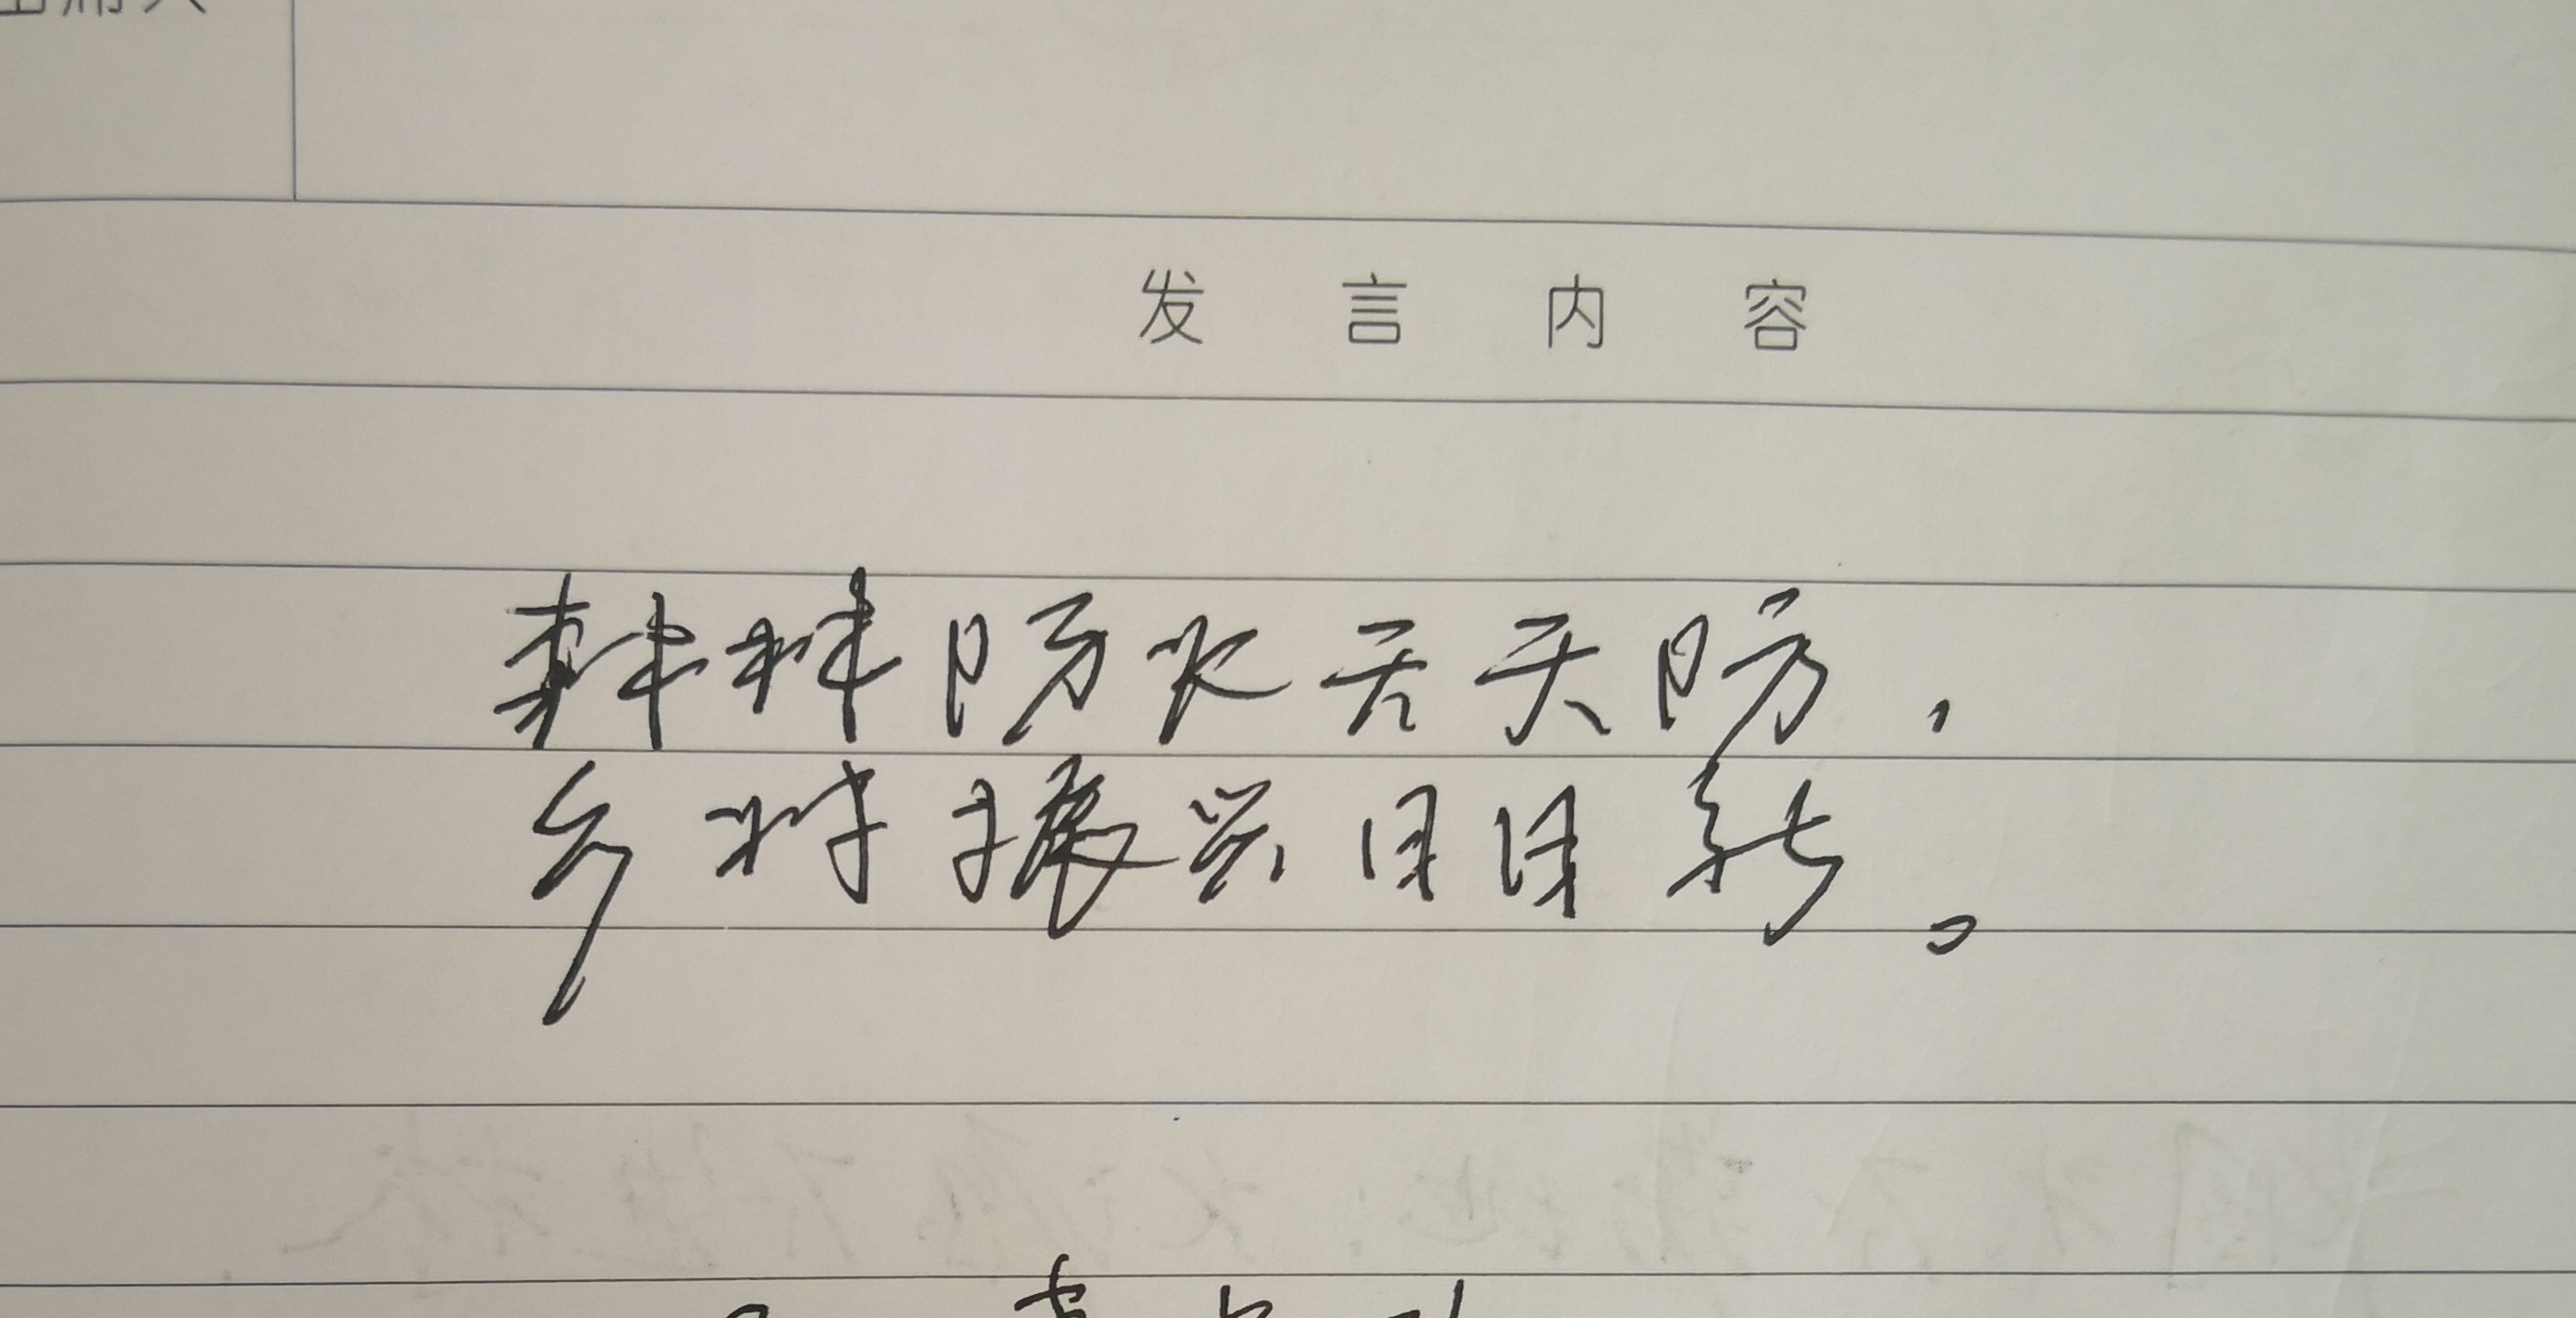 发言内容
森林防火天天防,
乡村振兴日日新。